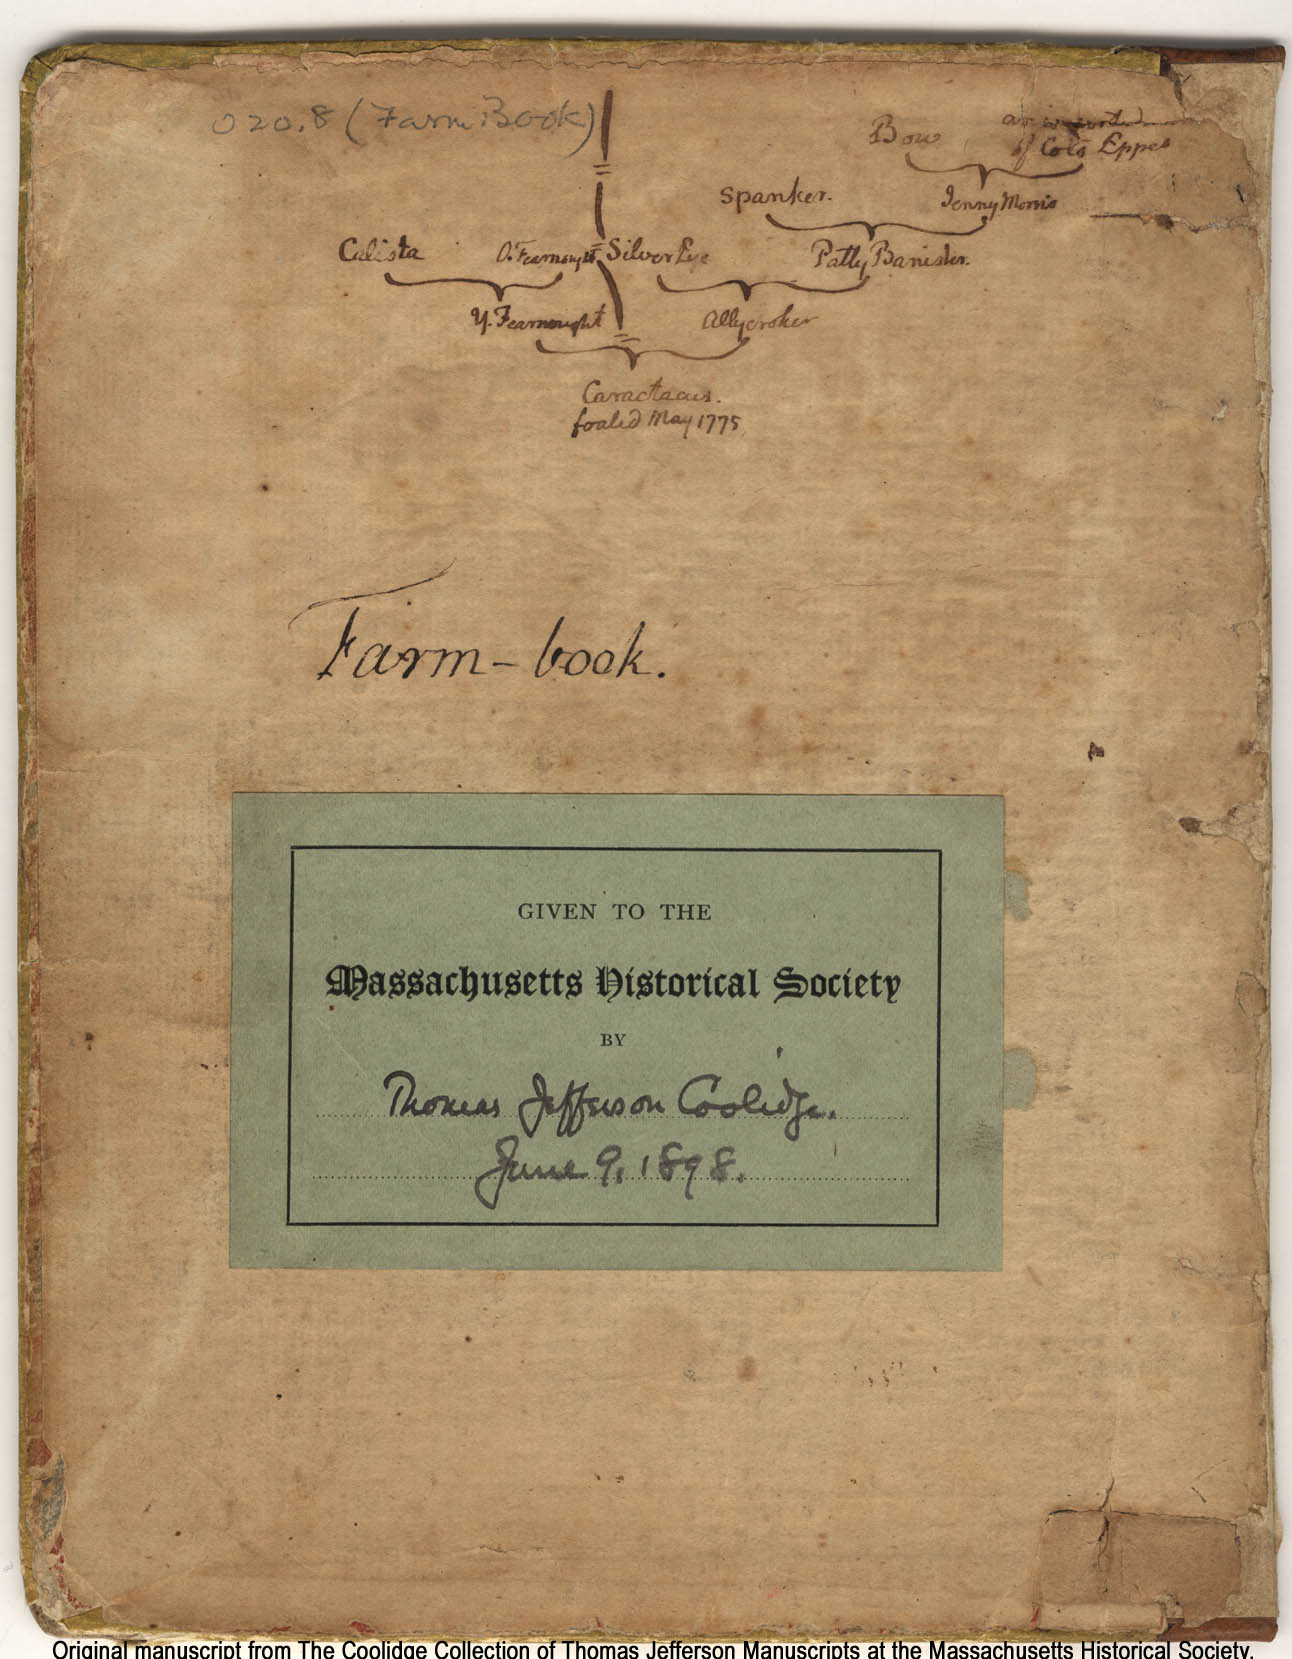 020.8 (Farm Book)
Bow
of Colo Eppes
Spanker.
Jenny Morris
Calista
O. Fearnought
Silver Eye
Patty Banister.
Y. Fearnought
Allycroker
Caractacus.
foaled May 1775
Farm-book.
GIVEN TO THE
Massachusetts Historical Society
BY
Thomas Jefferson Coolidge.
June 9, 1898.
Original manuscript from The Coolidge Collection of Thomas Jefferson Manuscripts at the Massachusetts Historical Society.